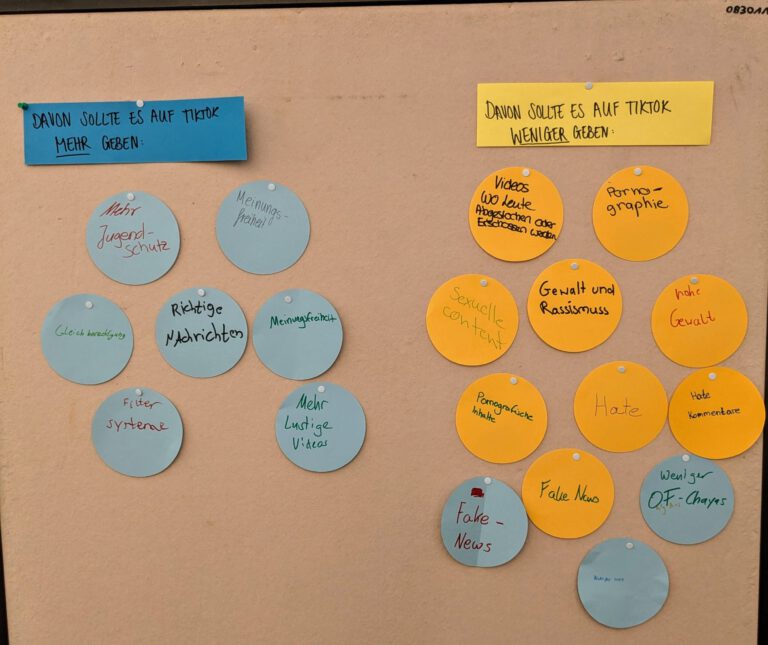 083011
DAVON SOLLTE ES AUF TIKTOK
MEHR GEBEN:
Mehr
Jugend-
schutz
Meinungs-
freiheit
Gleichberechtigung
Richtige
NAchrichten
Meinugsfreiheit
Filter
systeme
Mehr
Lustige
Videos
DAVON SOLLTE ES AUF TIKTOK
WENIGER GEBEN:
Videos
Wo Leute
Abgestochen oder
Erschossen werden
Porno-
graphie
Sexuelle
content
Gewalt und
Rassismuss
hohe
Gewalt
Pornografische
Inhalte
Hate
Hate
Kommentare
Fake-
News
Fake News
Weniger
OF-Chayas